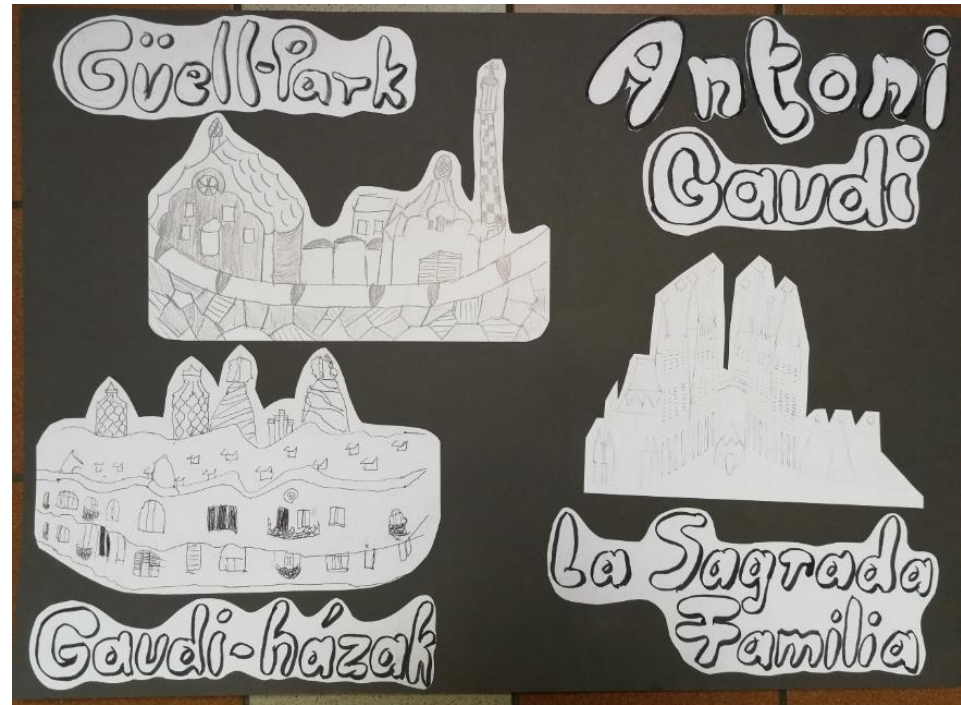 Güell-Park
Antoni
Gaudi
Gaudi-házak
La Sagrada
Familia